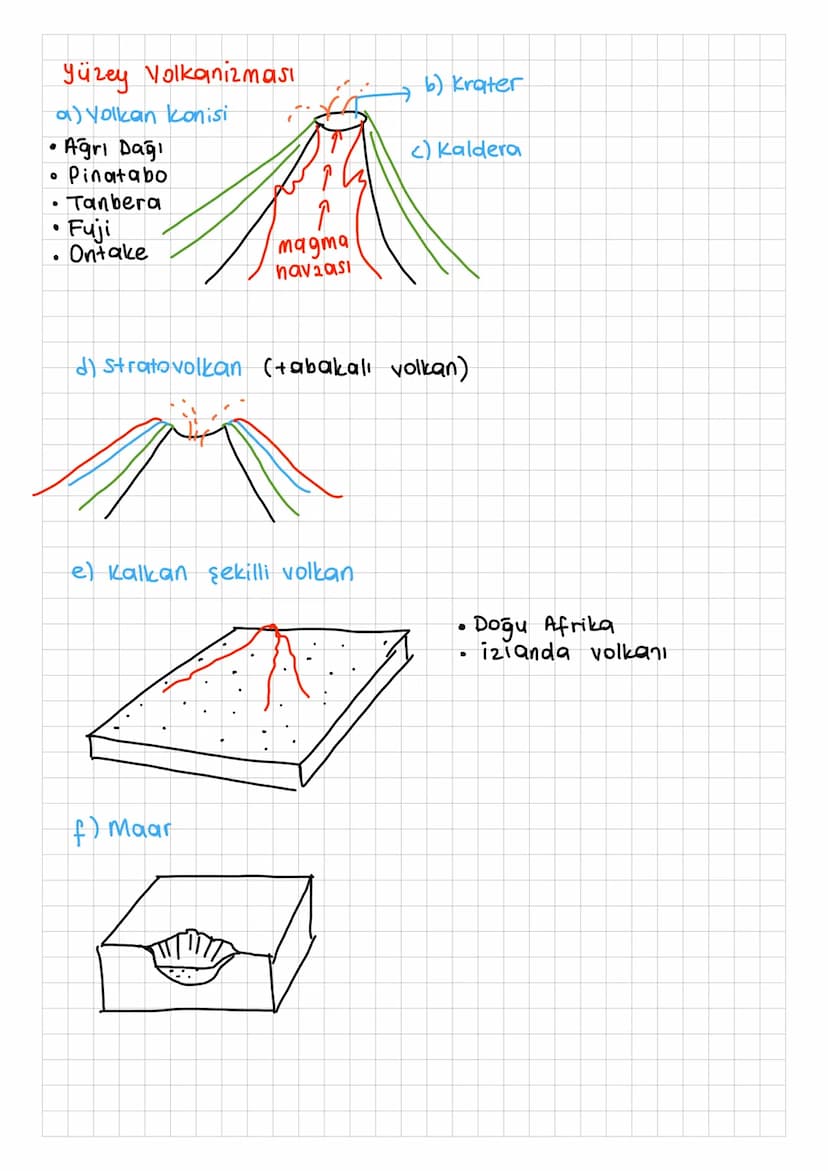 Yüzey Volkanizması
a) Volkan konisi
• Ağrı Dağı
• Pinatabo
• Tanbera
• Fuji
• Ontake
b) Krater
c) Kaldera
magma
havzası
d) Stratovolkan (tabakalı volkan)
e) Kalkan şekilli volkan
• Doğu Afrika
• izlanda volkanı
f) Maar